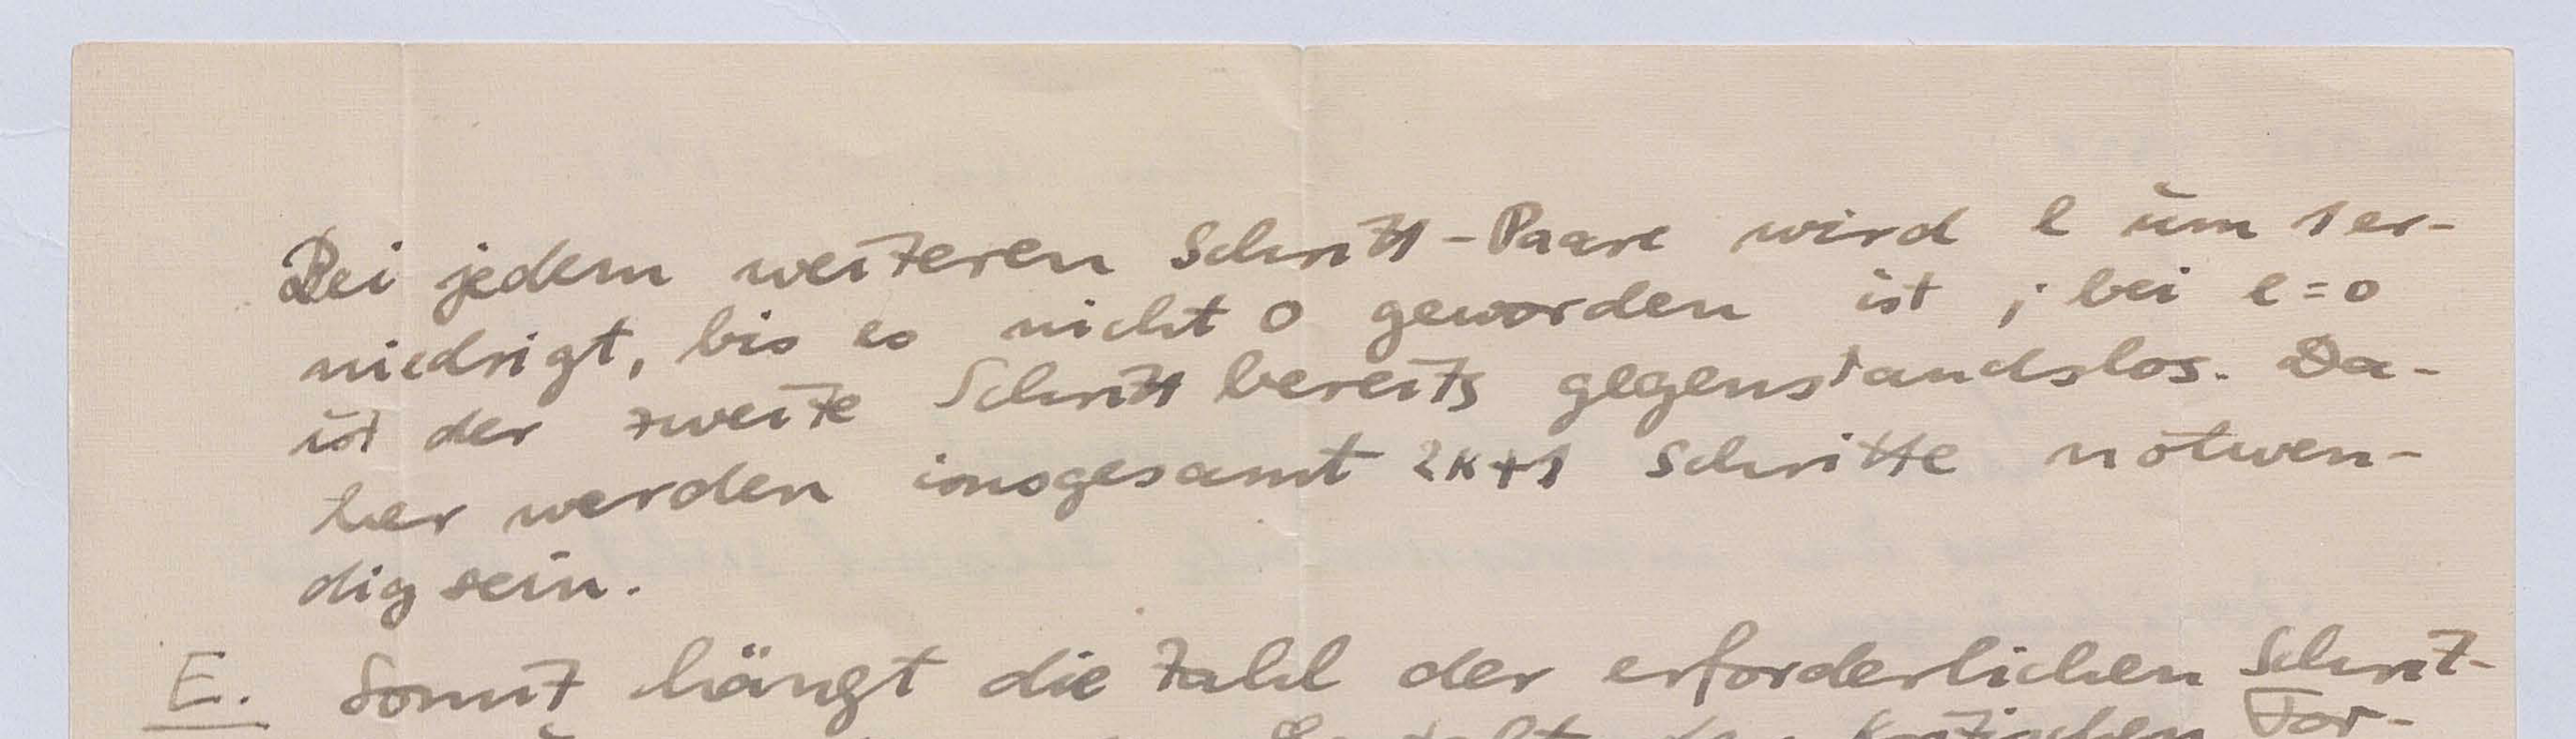 Bei jedem weiteren Schritt-Paare wird l um 1 er-
niedrigt, bis es nicht 0 geworden ist ; bei l=0
ist der zweite Schritt bereits gegenstandslos. Da-
her werden insgesamt 2k+1 Schritte notwen-
dig sein.
E. Somit hängt die Zahl der erforderlichen Schrit-
der kritischen For-